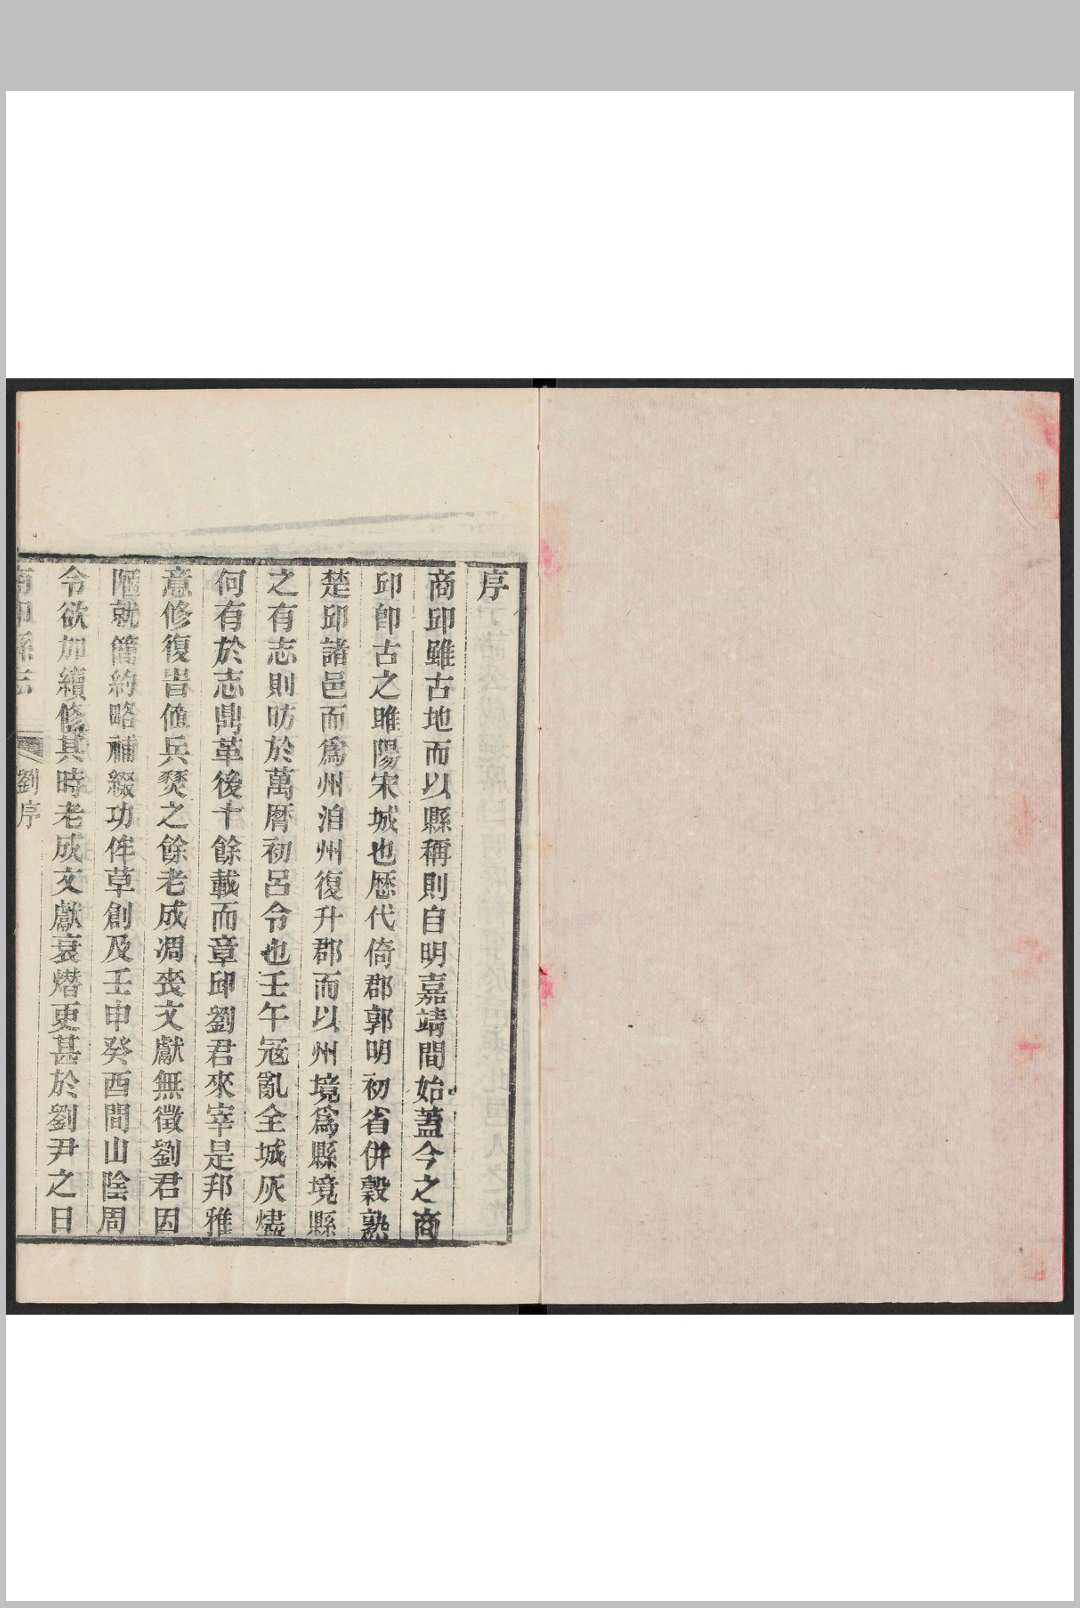 序
商邱雖古地而以縣稱則自明嘉靖間始蓋今之商
邱卽古之睢陽宋城也歷代倚郡郭明初省併穀熟
楚邱諸邑而爲州洎州復升郡而以州境爲縣境縣
之有志則昉於萬曆初呂令也壬午寇亂全城灰燼
何有於志鼎革後十餘載而章邱劉君來宰是邦雅
意修復旹値兵燹之餘老成凋喪文獻無徵劉君因
陋就簡約略補綴功侔草創及壬申癸酉間山陰周
令欲加續修其時老成文獻衰熸更甚於劉尹之日
商邱縣志
劉序